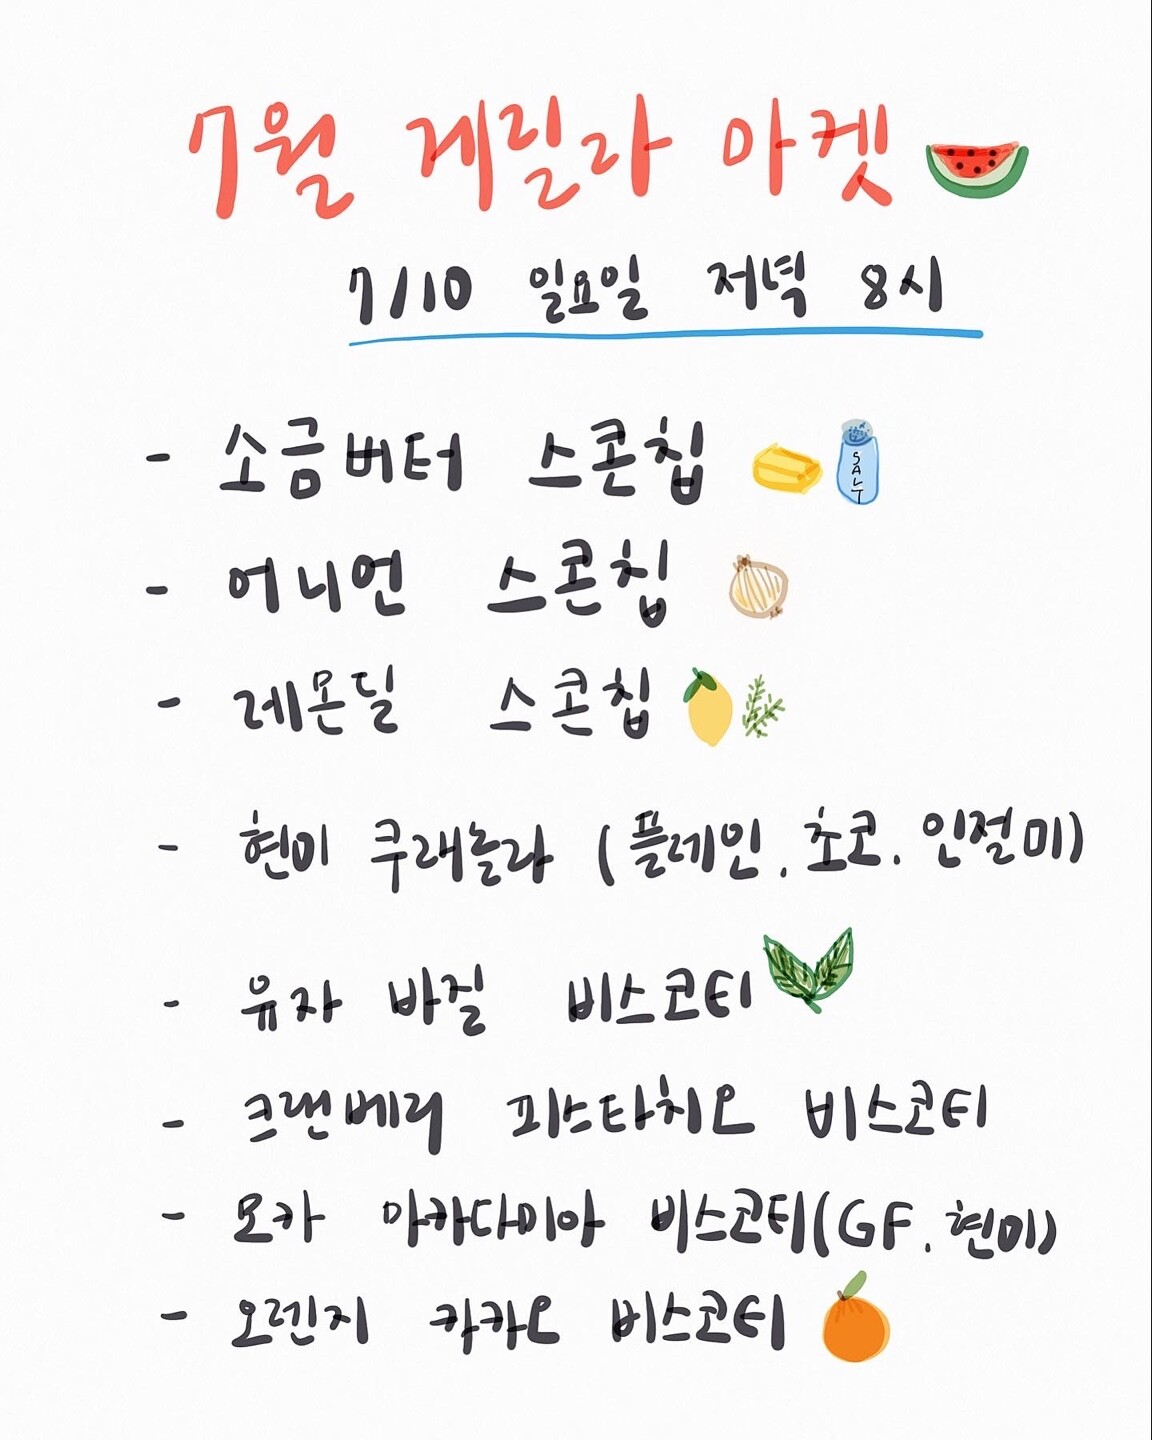 7월 게릴라 마켓
7/10 일요일 저녁 8시
- 소금버터 스콘칩
SALT
- 어니언 스콘칩
- 레몬딜 스콘칩
- 현미 쿠래놀라 (플레인, 초코, 인절미)
- 유자 바질 비스코티
- 크랜베리 피스타치오 비스코티
- 모카 마카다미아 비스코티(GF, 현미)
- 오렌지 카카오 비스코티